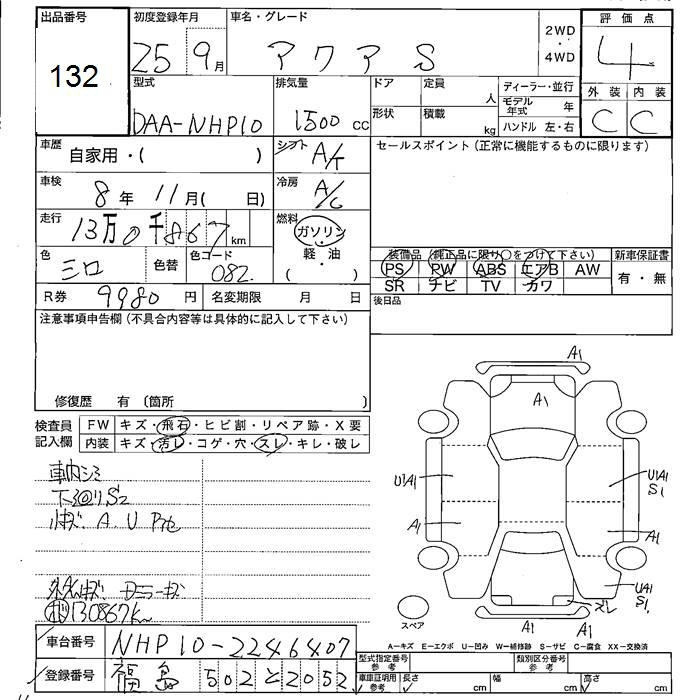 出品番号
132
初度登録年月
25 9月
車名・グレード
アクア S
2WD
・
4WD
評価点
4
外装 内装
C C
型式
DAA-NHP10
排気量
1500 cc
ドア
定員
人
形状
積載
kg
ディーラー・並行
モデル年式 年
ハンドル 左・右
車歴
自家用・( )
シフト
A/T
セールスポイント(正常に機能するものに限ります)
車検
8年 11月( 日)
冷房
A/C
走行
13万0千867km
燃料
ガソリン
・
軽・油
( )
色
シロ
色替
色コード
082
R券 9980円
名変期限 月 日
装備品
新車保証書
PS PW ABS エアB AW
有・無
SR ナビ TV カワ
後日品
注意事項申告欄(不具合内容等は具体的に記入して下さい)
修復歴 有 (箇所 )
検査員
記入欄
FW キズ・飛石・ヒビ割・リペア跡・X要
内装 キズ・汚レ・コゲ・穴・スレ・キレ・破レ
車内シミ
下廻りS2
A. U
130867km
A1
A1
U1A1
A1
U1A1
S1
A1
U1A1
S1
A1
A1
スペア
A-キズ E-エクボ U-凹み W-補修跡 S-サビ C-腐食 XX-交換済
車台番号 NHP10-2246407
登録番号 福島 502と2052
型式指定番号
参考
類別区分番号
参考
車庫証明用
参考
長さ cm
幅 cm
高さ cm